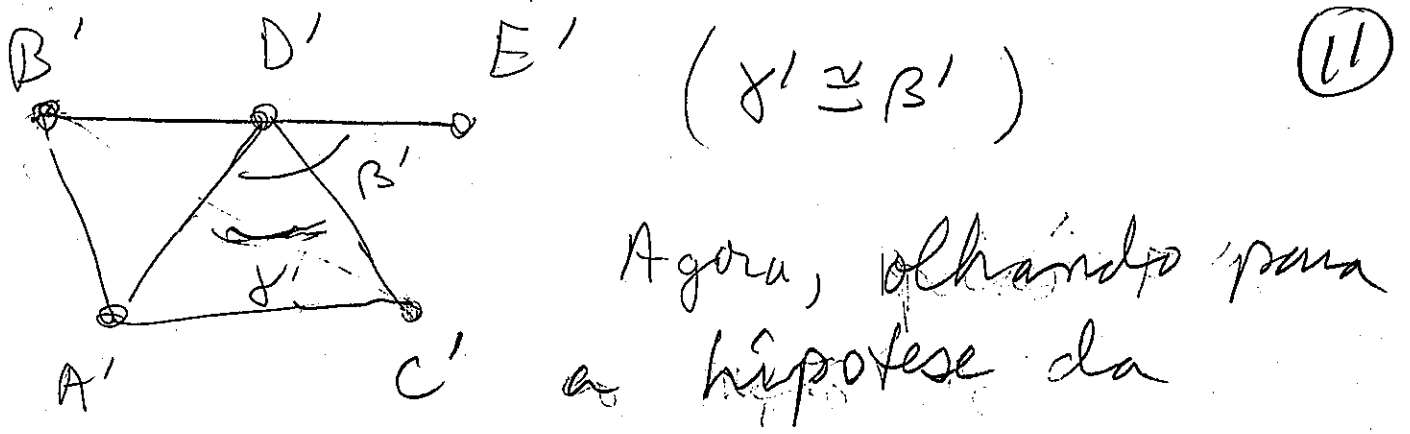 B' D' E' (γ' ≅ β') 11
β'
γ'
Agora, olhando para
A' C' a hipótese da